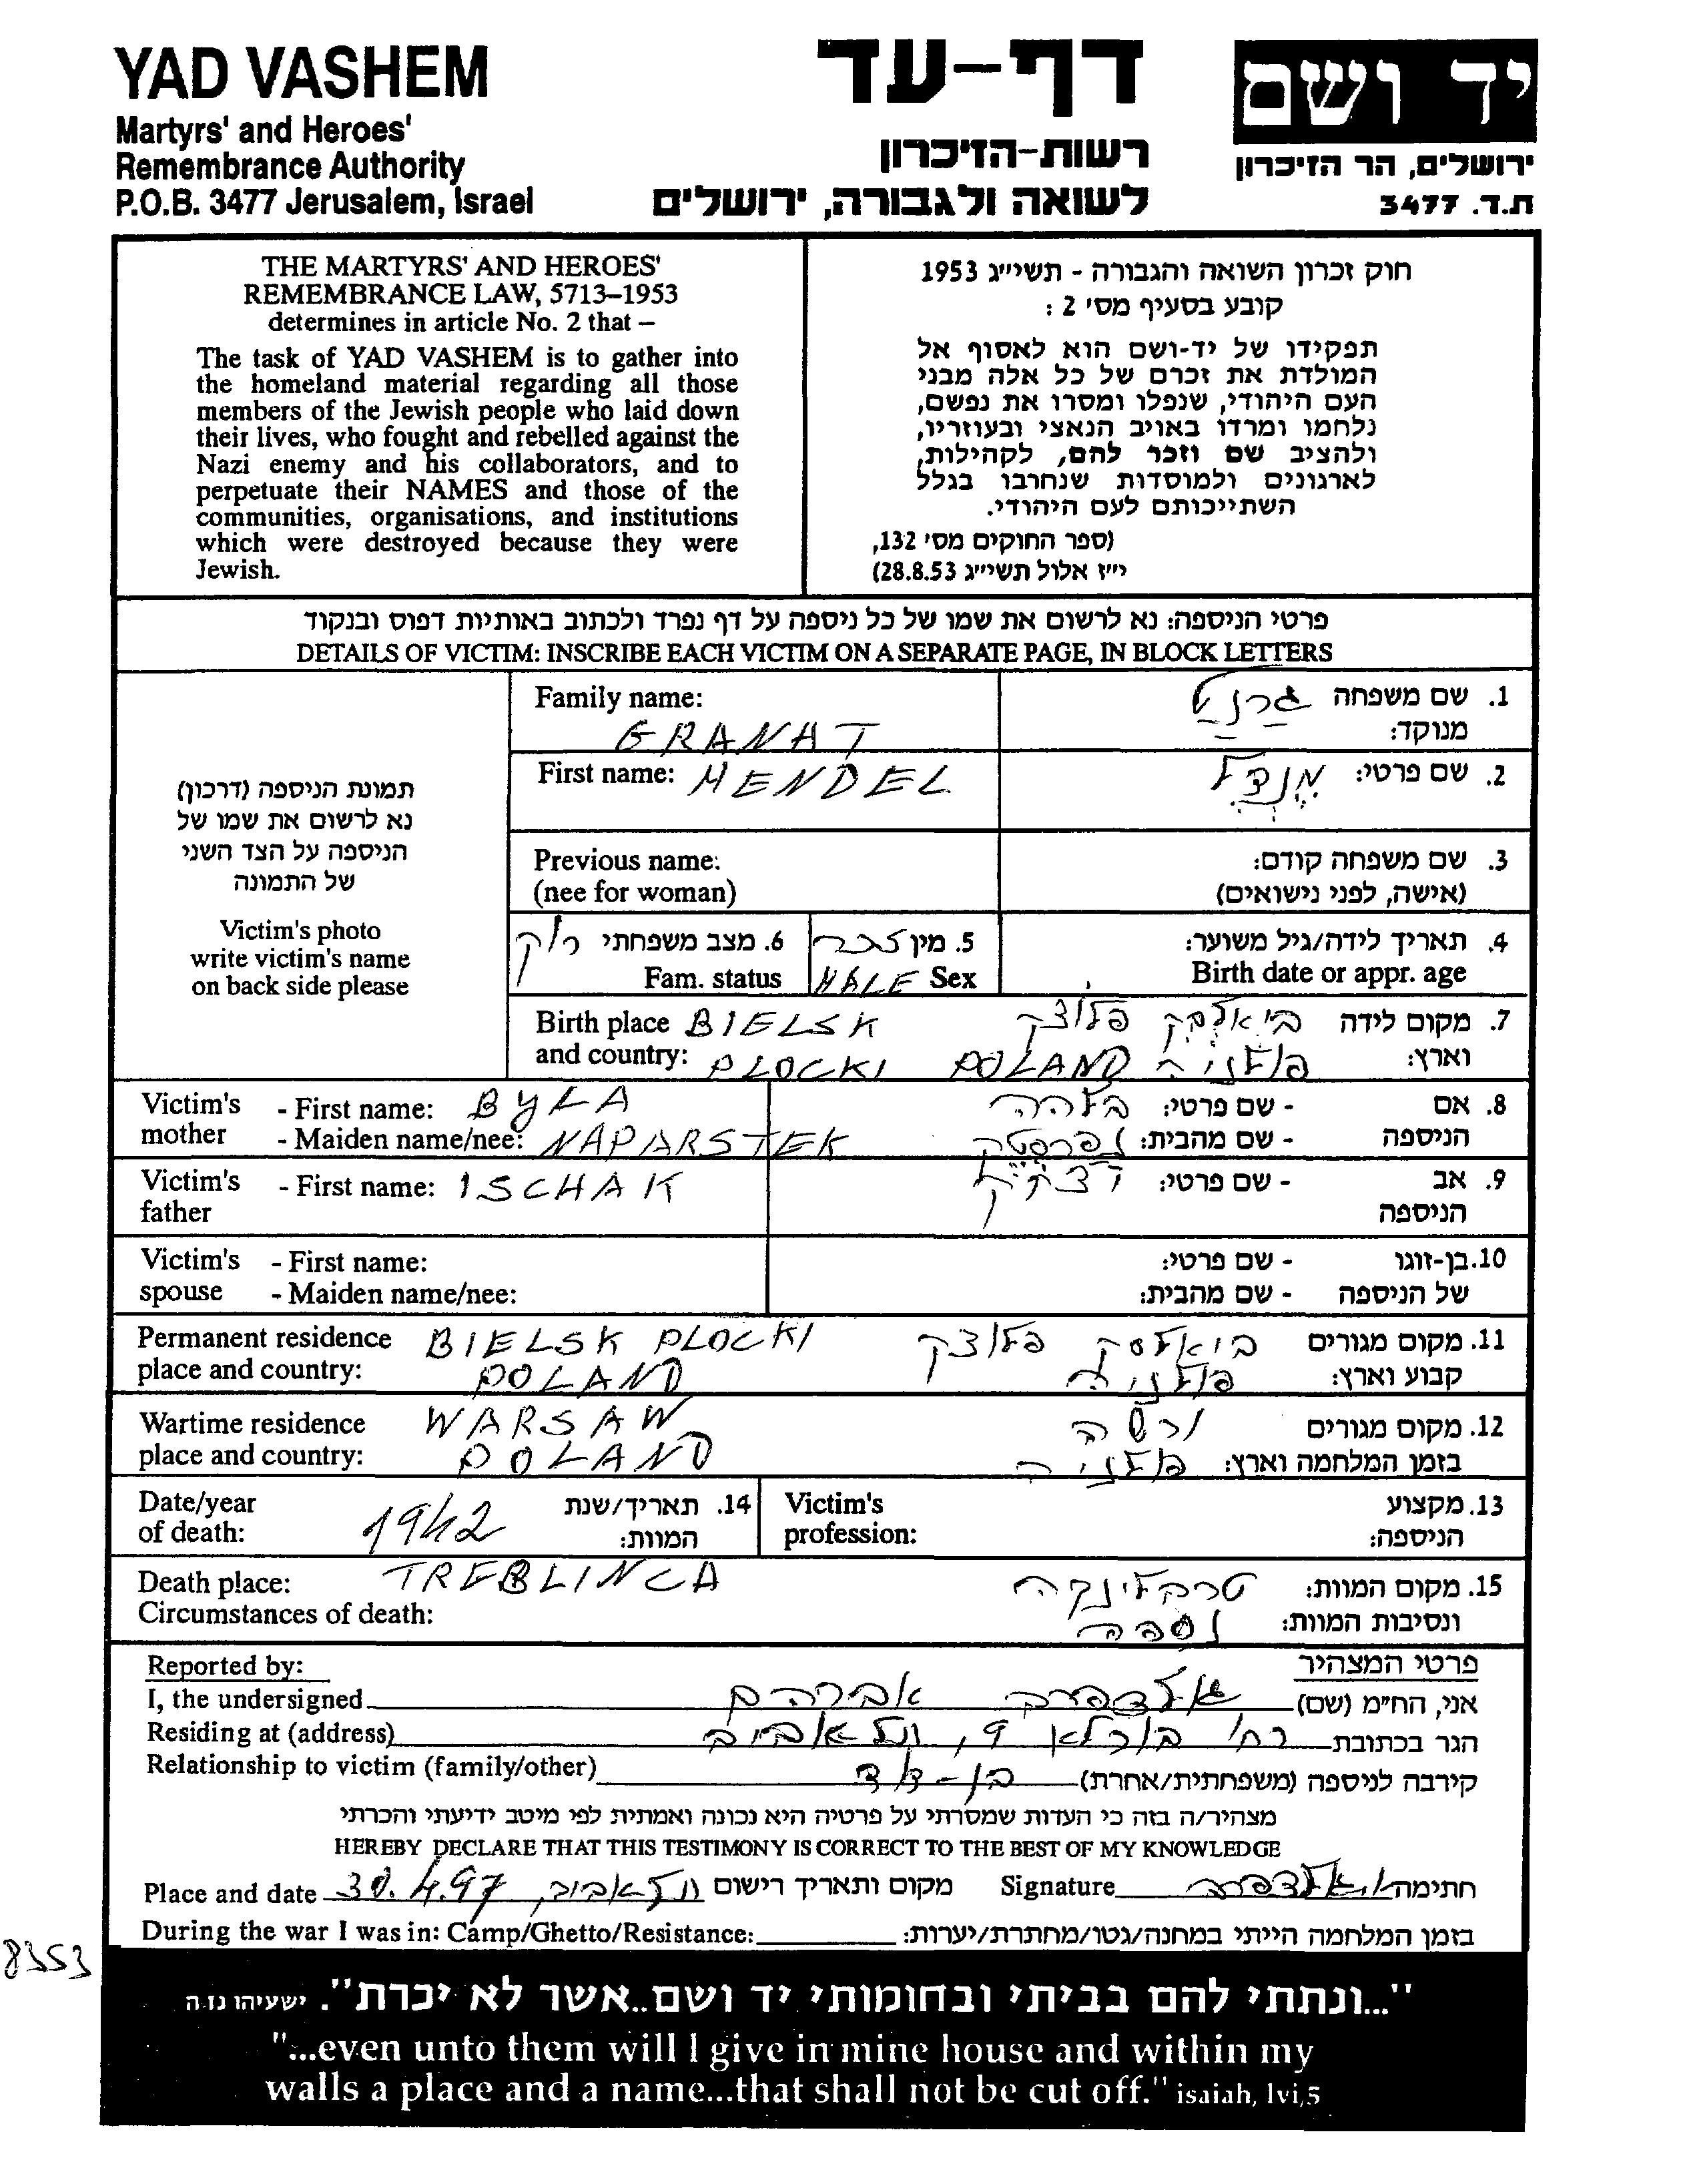 YAD VASHEM
Martyrs' and Heroes'
Remembrance Authority
P.O.B. 3477 Jerusalem, Israel
דף-עד
רשות-הזיכרון
לשואה ולגבורה, ירושלים
יד ושם
ירושלים, הר הזיכרון
ת.ד. 3477
THE MARTYRS' AND HEROES'
REMEMBRANCE LAW, 5713–1953
determines in article No. 2 that –
The task of YAD VASHEM is to gather into
the homeland material regarding all those
members of the Jewish people who laid down
their lives, who fought and rebelled against the
Nazi enemy and his collaborators, and to
perpetuate their NAMES and those of the
communities, organisations, and institutions
which were destroyed because they were
Jewish.
חוק זכרון השואה והגבורה - תשי״ג 1953
קובע בסעיף מס׳ 2 :
תפקידו של יד-ושם הוא לאסוף אל
המולדת את זכרם של כל אלה מבני
העם היהודי, שנפלו ומסרו את נפשם,
נלחמו ומרדו באויב הנאצי ובעוזריו,
ולהציב שם וזכר להם, לקהילות,
לארגונים ולמוסדות שנחרבו בגלל
השתייכותם לעם היהודי.
(ספר החוקים מס׳ 132,
י״ז אלול תשי״ג 28.8.53)
פרטי הניספה: נא לרשום את שמו של כל ניספה על דף נפרד ולכתוב באותיות דפוס ובנקוד
DETAILS OF VICTIM: INSCRIBE EACH VICTIM ON A SEPARATE PAGE, IN BLOCK LETTERS
תמונת הניספה (דרכון)
נא לרשום את שמו של
הניספה על הצד השני
של התמונה
Victim's photo
write victim's name
on back side please
Family name: GRANAT
1. שם משפחה מנוקד: גרנט
First name: MENDEL
2. שם פרטי: מנדל
Previous name:
(nee for woman)
3. שם משפחה קודם:
(אישה, לפני נישואים)
4. תאריך לידה/גיל משוער:
Birth date or appr. age
5. מין זכר
MALE Sex
6. מצב משפחתי רוק
Fam. status
Birth place BIELSK
and country: PLOCKI POLAND
7. מקום לידה ביאלסק פלוצק
וארץ: פולניה
Victim's mother - First name: BYLA
- Maiden name/nee: NAPARSTEK
8. אם הניספה - שם פרטי: בלהה
- שם מהבית: נפרסטק
Victim's father - First name: ISCHAK
9. אב הניספה - שם פרטי: יצחק
Victim's spouse - First name:
- Maiden name/nee:
10. בן-זוגו של הניספה - שם פרטי:
- שם מהבית:
Permanent residence BIELSK PLOCKI
place and country: POLAND
11. מקום מגורים ביאלסק פלוצק
קבוע וארץ: פולניה
Wartime residence WARSAW
place and country: POLAND
12. מקום מגורים ורשה
בזמן המלחמה וארץ: פולניה
Date/year
of death: 1942
14. תאריך/שנת
המוות:
Victim's
profession:
13. מקצוע
הניספה:
Death place: TREBLINCA
Circumstances of death:
15. מקום המוות: טרבלינקה
ונסיבות המוות: נספה
Reported by:
פרטי המצהיר
I, the undersigned
אני, הח״מ (שם) אברהם
Residing at (address)
הגר בכתובת רח׳ בורלא 9, תל אביב
Relationship to victim (family/other)
קירבה לניספה (משפחתית/אחרת) בן-דוד
מצהיר/ה בזה כי העדות שמסרתי על פרטיה היא נכונה ואמתית לפי מיטב ידיעתי והכרתי
HEREBY DECLARE THAT THIS TESTIMONY IS CORRECT TO THE BEST OF MY KNOWLEDGE
Place and date 30.4.97 תל אביב, מקום ותאריך רישום
Signature חתימה
During the war I was in: Camp/Ghetto/Resistance:
בזמן המלחמה הייתי במחנה/גטו/מחתרת/יערות:
8353
"...ונתתי להם בביתי ובחומותי יד ושם..אשר לא יכרת". ישעיהו נו.ה
"...even unto them will I give in mine house and within my
walls a place and a name...that shall not be cut off." isaiah, lvi,5